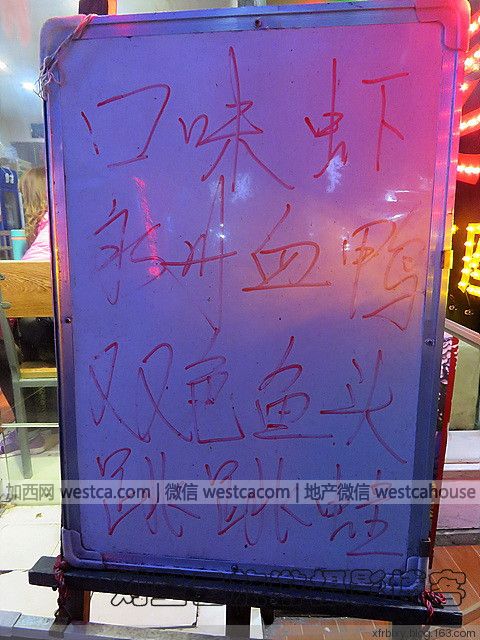 口味虾
永州血鸭
双色鱼头
跳跳蛙
加西网 westca.com | 微信 westcacom | 地产微信 westcahouse
xfrblxy.blog.163.com